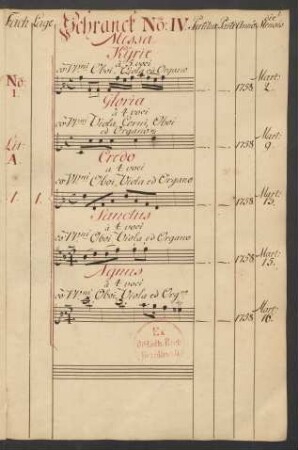 Fach: Lage. Schranck No: IV.
Missa
Kyrie
à 5 voci
co VV.ni Oboi, Viola ed Organo
No: 1. 1758 Mart: 2.
Gloria
à 4 voci
co VV.ni Viola, Corni, Oboi
ed Organo
Lit: A. 1758 Mart: 9.
Credo
à 4 voci
co VV.ni Oboi, Viola ed Organo
1. 1. 1758 Mart: 13.
Sanctus
à 4 voci
co VV.ni Oboi, Viola ed Organo
1758 Mart: 15.
Agnus
à 4 voci
co VV.ni Oboi, Viola ed Org:
1758 Mart: 16.